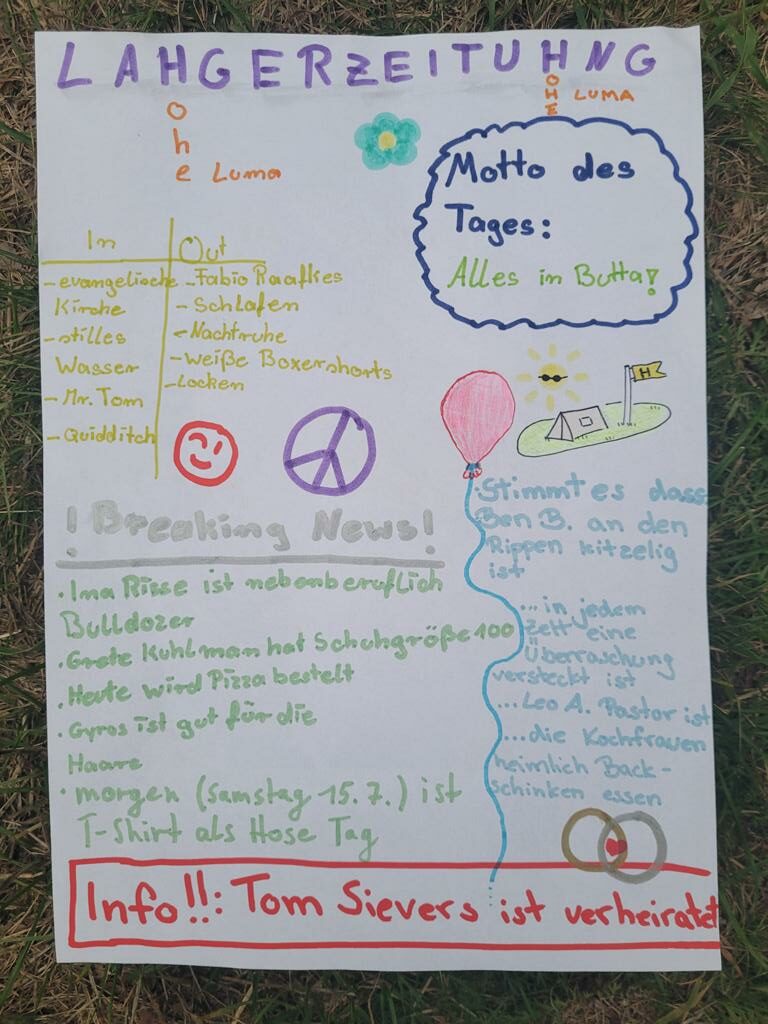 LAHGERZEITUHNG
ohe Luma
OHE LUMA
Motto des
Tages:
Alles in Butta!
In
- evangelische
Kirche
- stilles
Wasser
- Mr. Tom
- Quidditch
Out
- Fabio Raafkes
- Schlafen
- Nachtruhe
- Weiße Boxershorts
- Locken
H
! Breaking News!
• Ima Risse ist nebenberuflich
Bulldozer
• Grete Kuhlman hat Schuhgröße 100
• Heute wird Pizza bestelt
• Gyros ist gut für die
Haare
• morgen (Samstag 15.7.) ist
T-Shirt als Hose Tag
Stimmt es dass
Ben B. an den
Rippen kitzelig
ist
... in jedem
Zelt eine
Überraschung
versteckt ist
... Leo A. Pastor ist
... die Kochfrauen
heimlich Back-
schinken essen
Info!!: Tom Sievers ist verheiratet